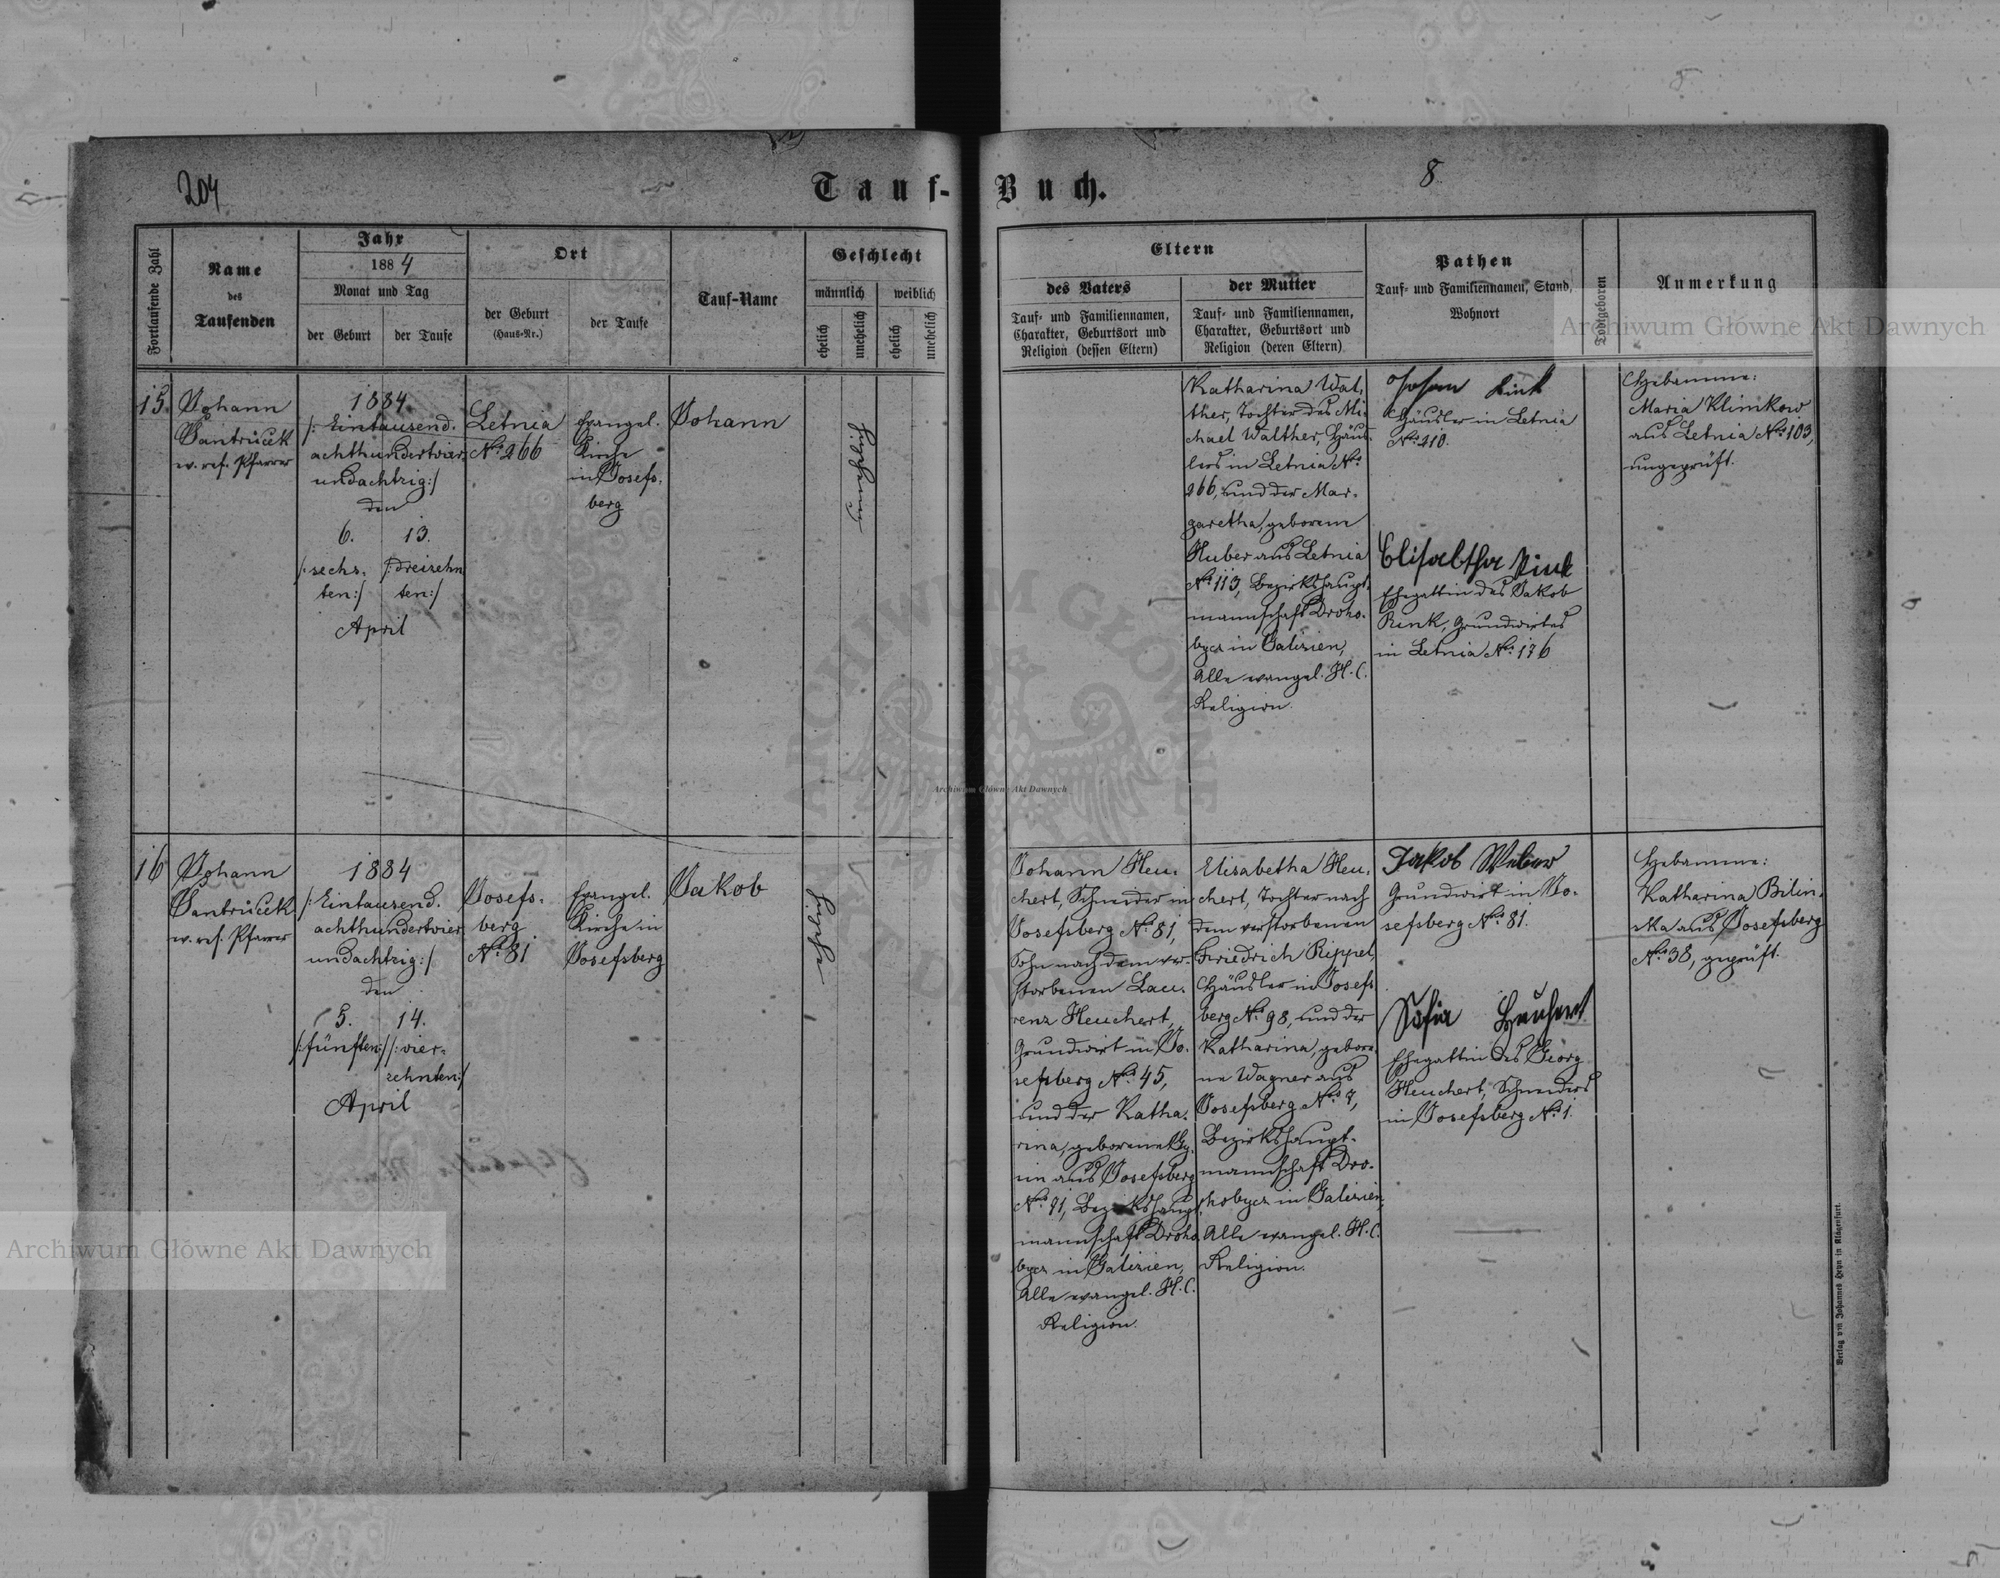 204
Tauf-Buch.
8
Fortlaufende Zahl
Name
des
Taufenden
Jahr
1884
Monat und Tag
der Geburt
der Taufe
Ort
der Geburt
(Haus-Nr.)
der Taufe
Tauf-Name
Geschlecht
männlich
weiblich
ehelich
unehelich
ehelich
unehelich
Eltern
des Vaters
Tauf- und Familiennamen,
Charakter, Geburtsort und
Religion (dessen Eltern)
der Mutter
Tauf- und Familiennamen,
Charakter, Geburtsort und
Religion (deren Eltern)
Pathen
Tauf- und Familiennamen, Stand,
Wohnort
Todtgeboren
Anmerkung
15.
Johann
Jantrücek
ev. ref. Pfarrer
1884.
/: Eintausend.
achthundertvier.
undachtzig :/
den
6.
/: sechs.
ten :/
13.
/: dreizehn
ten :/
April
Letnia
No. 266
Evangel.
Kirche
in Josefs.
berg
Johann
unehelich
Katharina Wal.
ther, Tochter des Mi.
chael Walther, Häus.
lers in Letnia No.
266, und der Mar.
garetha, geborene
Huber aus Letnia
No. 113, Bezirkshaupt.
mannschaft Droho.
bycz in Galizien,
Alle evangel. H. C.
Religion.
Johann Rink
Häusler in Letnia
No. 210.
Elisabetha Rink
Ehegattin des Jakob
Rink, Grundwirtes
in Letnia No. 176
Hebamme:
Maria Klimkow
aus Letnia No. 103,
ungeprüft.
16
Johann
Jantrücek
ev. ref. Pfarrer
1884
/: Eintausend.
achthundertvier
undachtzig :/
den
5.
/: fünften :/
14.
/: vier.
zehnten :/
April
Josefs.
berg
No. 81
Evangel.
Kirche in
Josefsberg
Jakob
ehelich
Johann Heu.
chert, Schneider in
Josefsberg No. 81,
Sohn nach dem ver.
storbenen Lau.
renz Heuchert,
Grundwirt in Jo.
sefsberg No. 45,
und der Katha.
rina, geborene
aus Josefsberg
No. 91, Bezirkshaupt.
mannschaft Droho.
bycz in Galizien,
Alle evangel. H. C.
Religion.
Elisabetha Heu.
chert, Tochter nach
dem verstorbenen
Friedrich Rippel,
Häusler in Josefs
berg No. 98, und der
Katharina, gebore.
ne Wagner aus
Josefsberg No. 7,
Bezirkshaupt.
mannschaft Dro.
hobycz in Galizien,
Alle evangel. H. C.
Religion.
Jakob Weber
Grundwirt in Jo.
sefsberg No. 81.
Sofia Heuchert
Ehegattin des Georg
Heuchert, Schneiders
in Josefsberg No. 1.
Hebamme:
Katharina Bilin.
ska aus Josefsberg
No. 38, geprüft.
Verlag von Johannes Heyn in Klagenfurt.
Archiwum Główne Akt Dawnych
Archiwum Główne Akt Dawnych
Archiwum Główne Akt Dawnych